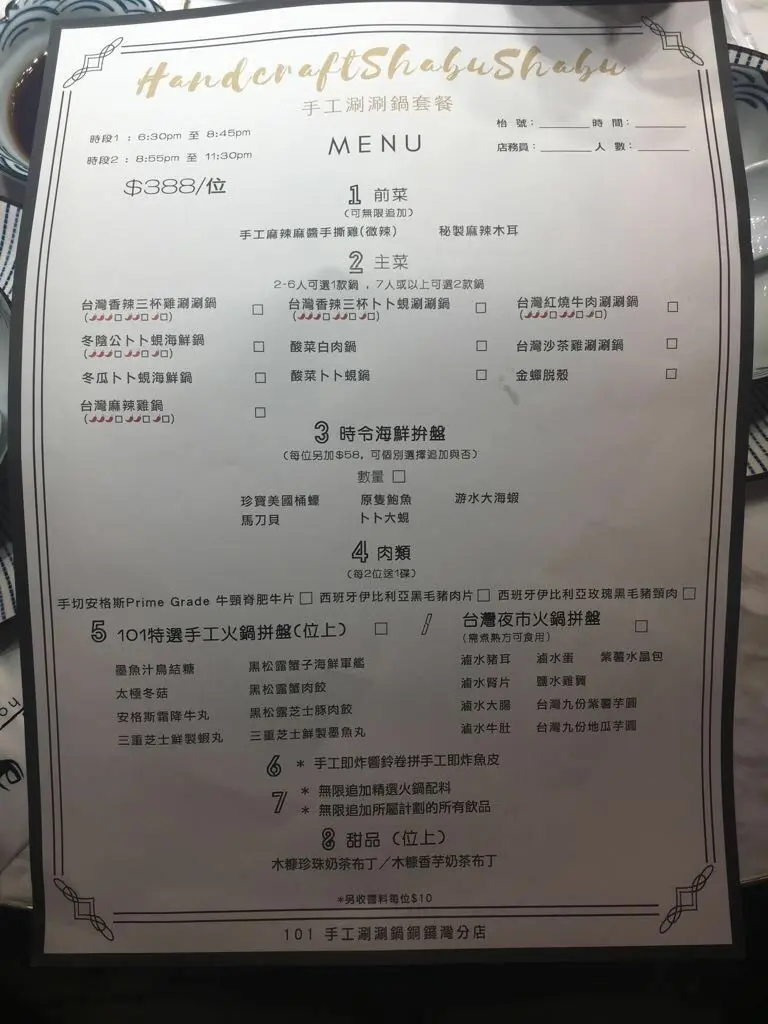 HandcraftShabuShabu
手工涮涮鍋套餐
時段1 : 6:30pm 至 8:45pm
時段2 : 8:55pm 至 11:30pm
MENU
枱 號: 時 間:
店務員: 人 數:
$388/位
1 前菜
(可無限追加)
手工麻辣麻醬手撕雞(微辣) 秘製麻辣木耳
2 主菜
2-6人可選1款鍋 , 7人或以上可選2款鍋
台灣香辣三杯雞涮涮鍋 台灣香辣三杯卜卜蜆涮涮鍋 台灣紅燒牛肉涮涮鍋
冬陰公卜卜蜆海鮮鍋 酸菜白肉鍋 台灣沙茶雞涮涮鍋
冬瓜卜卜蜆海鮮鍋 酸菜卜卜蜆鍋 金蟬脱殼
台灣麻辣雞鍋
3 時令海鮮拚盤
(每位另加$58, 可個別選擇追加與否)
數量
珍寶美國桶蠔 原隻鮑魚 游水大海蝦
馬刀貝 卜卜大蜆
4 肉類
(每2位送1碟)
手切安格斯Prime Grade 牛頸脊肥牛片 西班牙伊比利亞黑毛豬肉片 西班牙伊比利亞玫瑰黑毛豬頸肉
5 101特選手工火鍋拼盤(位上) / 台灣夜市火鍋拼盤
(需煮熟方可食用)
墨魚汁鳥結糖 黑松露蟹子海鮮軍艦 滷水豬耳 滷水蛋 紫薯水晶包
太極冬菇 黑松露蟹肉餃 滷水腎片 鹽水雞寶
安格斯霜降牛丸 黑松露芝士豚肉餃 滷水大腸 台灣九份紫薯芋圓
三重芝士鮮製蝦丸 三重芝士鮮製墨魚丸 滷水牛肚 台灣九份地瓜芋圓
6 * 手工即炸響鈴卷拼手工即炸魚皮
7 * 無限追加精選火鍋配料
* 無限追加所屬計劃的所有飲品
8 甜品 (位上)
木糠珍珠奶茶布丁／木糠香芋奶茶布丁
*另收醬料每位$10
101 手工涮涮鍋銅鑼灣分店